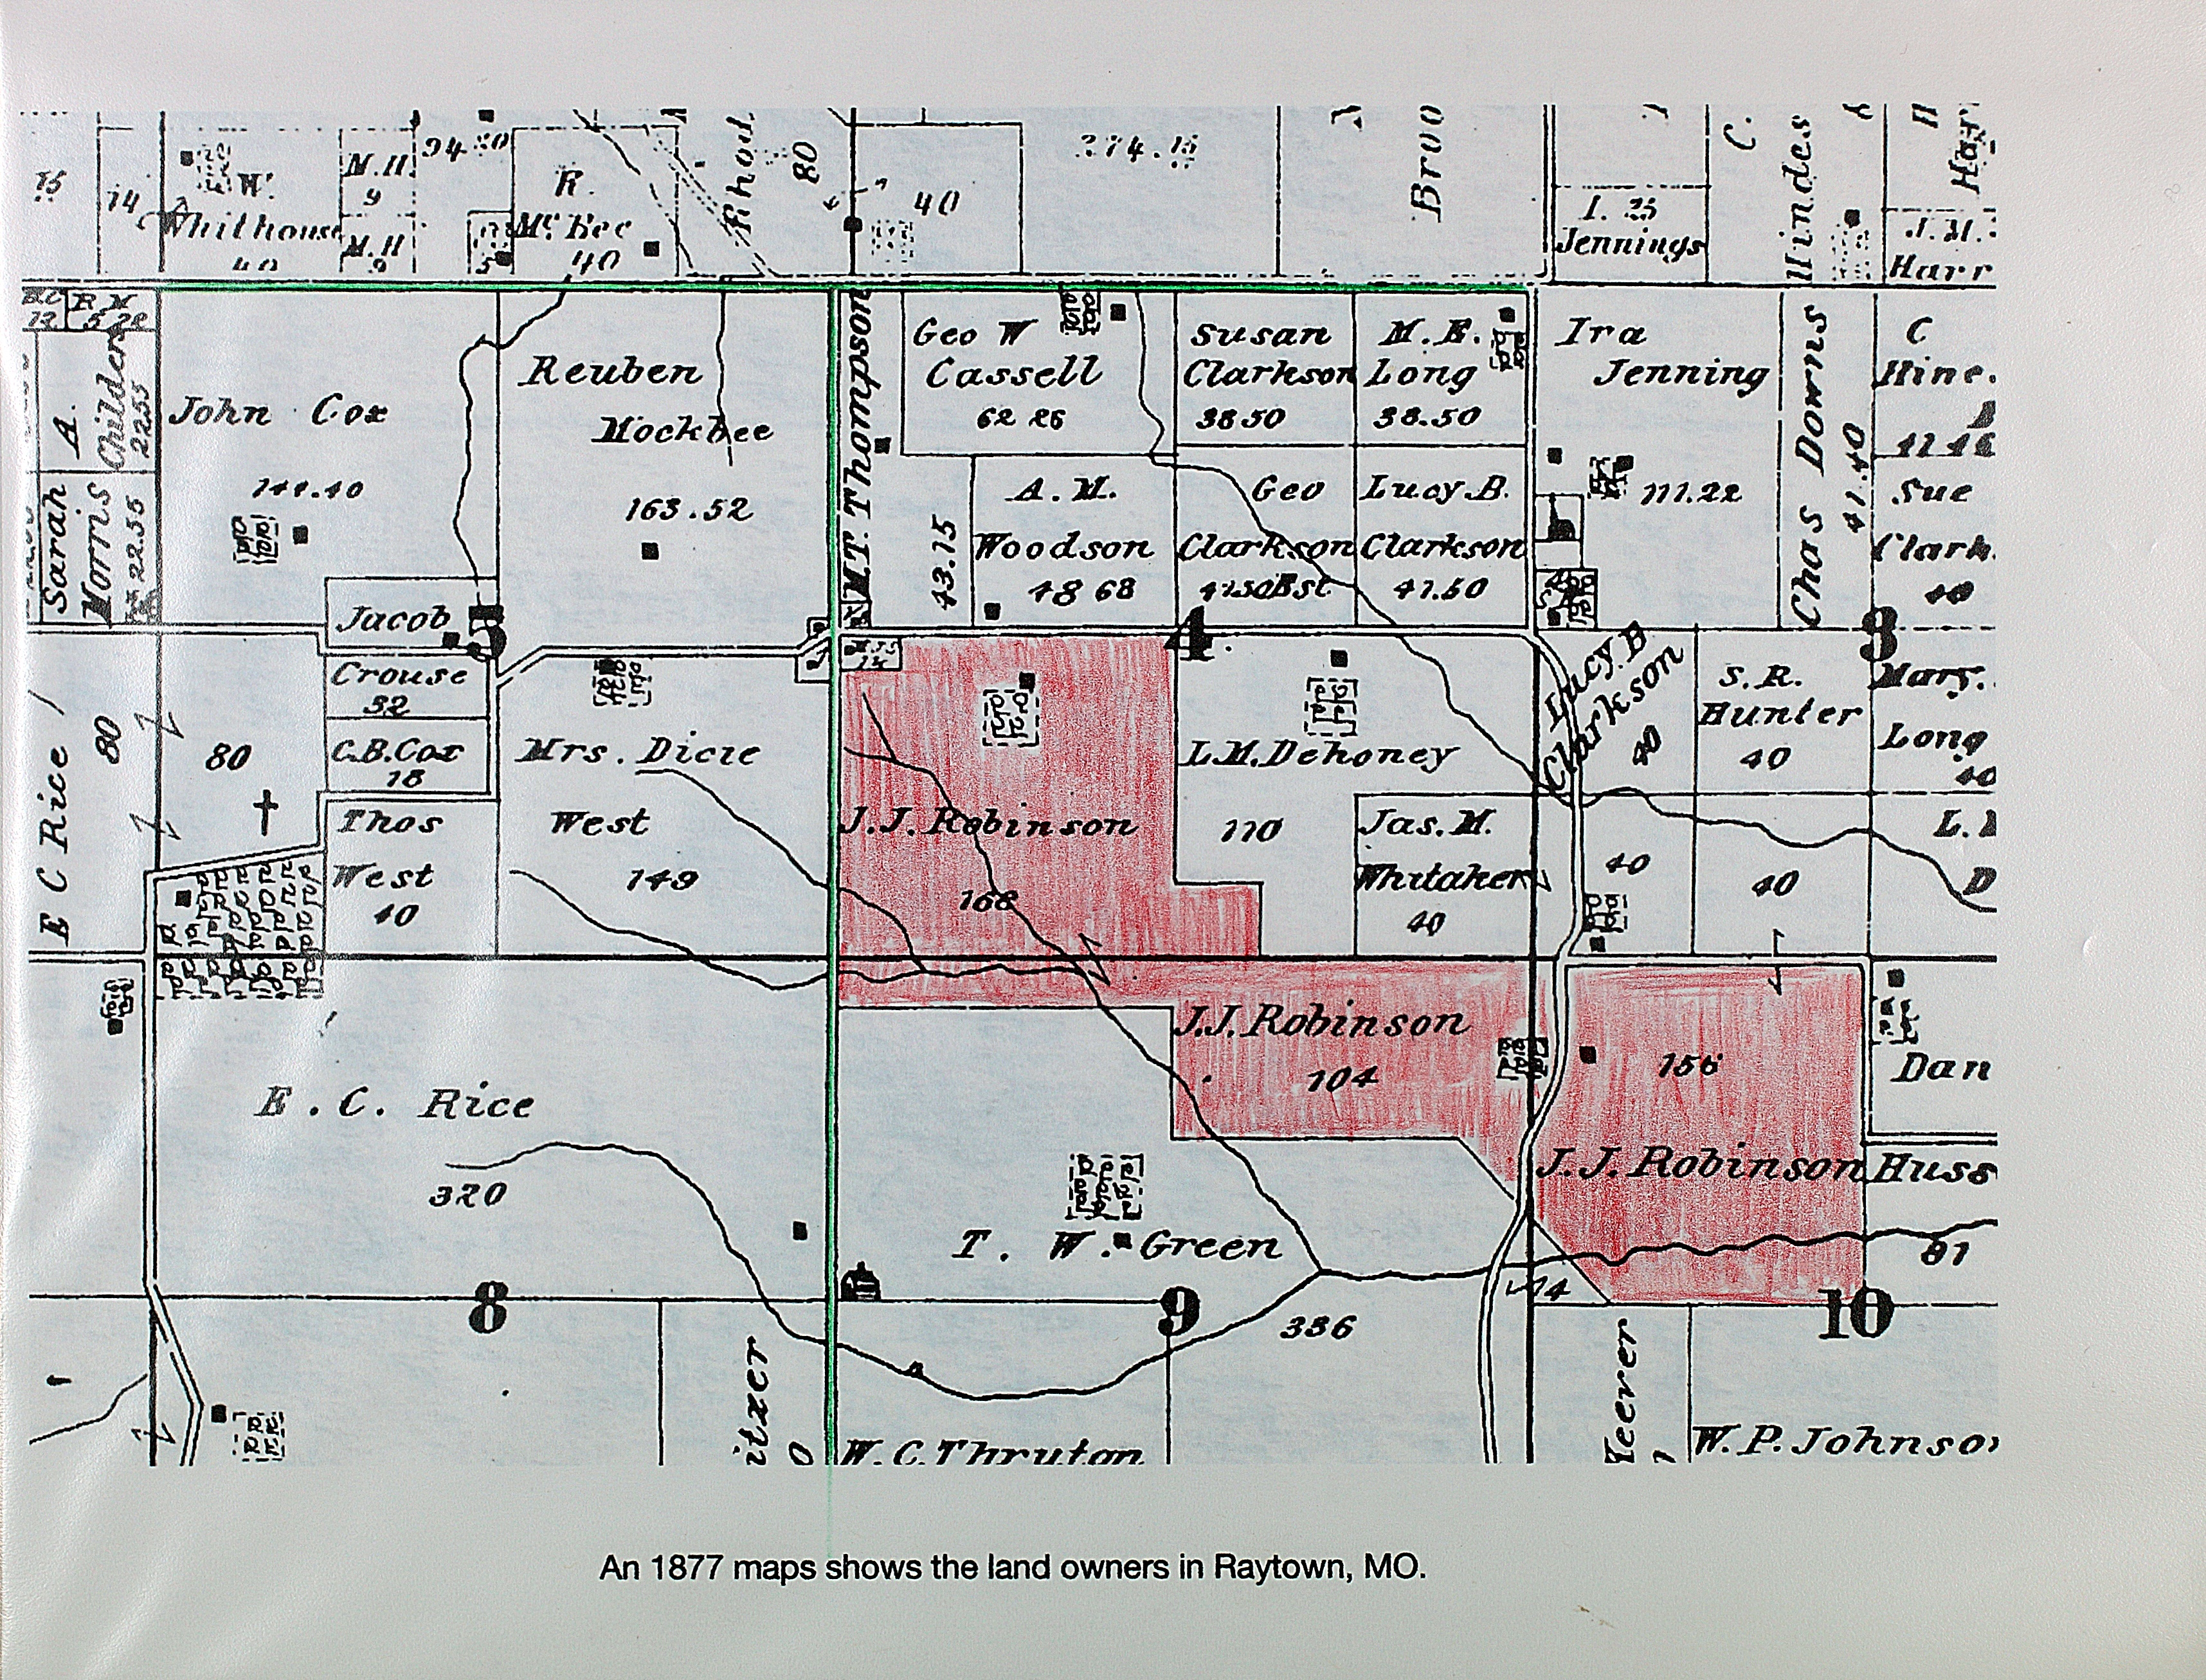 15
14
W.
Whithouse
40
M.H.
9
M.H
9
94 20
5
R.
McKee
40
Rhoa
80
40
274.15
Broo
I. 25
Jennings
C.
Hindes
J.M.
Harr
B.C
12
R M
5 20
A.
Childers
22.55
Sarah
Morris
22.55
John Cox
141.40
Reuben
Mockbee
163.52
M.T. Thompson
43.15
Geo W
Cassell
62 26
Susan
Clarkson
38 50
M.E.
Long
38.50
Ira
Jenning
111.22
Chas Downs
41.40
C
Hine.
41 46
Sue
Clark.
40
A.M.
Woodson
48 68
Geo
Clarkson
41.50 Est
Lucy B.
Clarkson
41.50
Jacob
5
Crouse
32
C.B.Cox
18
Thos
West
40
E C Rice
80
80
Mrs. Dicie
West
149
4
J.J. Robinson
168
L.M. Dehoney
110
Jas. M.
Whitaker
40
Lucy. B
Clarkson
40
S.R.
Hunter
40
3
Mary.
Long
40
40
40
L.
D
J.J. Robinson
104
156
J.J. Robinson
Dan
Huss
81
E. C. Rice
320
T. W. Green
336
14
8
9
10
itzer
0
W.C. Thruton
Heerer
W.P. Johnson
An 1877 maps shows the land owners in Raytown, MO.